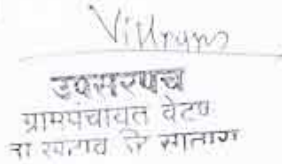 उपसरपंच
ग्रामपंचायत वेटणे
ता खटाव जि सातारा